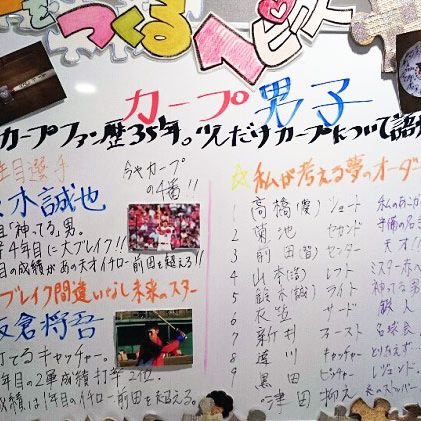 をつくる ピース
カープ男子
カープファン歴35年。少しだけカープについて語
注目選手
木誠也
今やカープ
の4番!!
目「神ってる」男。
4年目に大ブレイク!!
目の成績があの天才イチロー、前田を超える!!
ブレイク間違いなし未来のスター
坂倉将吾
打てるキャッチャー。
年目の2軍成績打率2位。
成績は1年目のイチロー前田を超える。
☆私が考える夢のオーダー
1 高橋(慶) ショート
2 菊池 セカンド
3 前田(智) センター 天才!!
4 山本(浩) レフト ミスター赤ヘ
5 鈴木(誠) ライト 神ってる男
6 衣笠 サード 鉄人
7 新井 ファースト 名球会
8 達川 キャッチャー とりあえず
9 黒田 ピッチャー レジェンド
津田 抑え 炎のストッパー